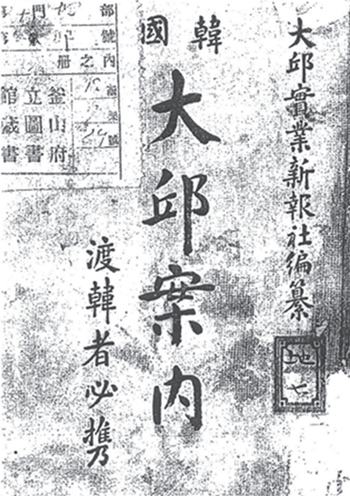 大邱實業新報社編纂
韓國
大邱案内
渡韓者必携
部門
號
内之
册
號
釜山府
立圖書
館藏書
地七